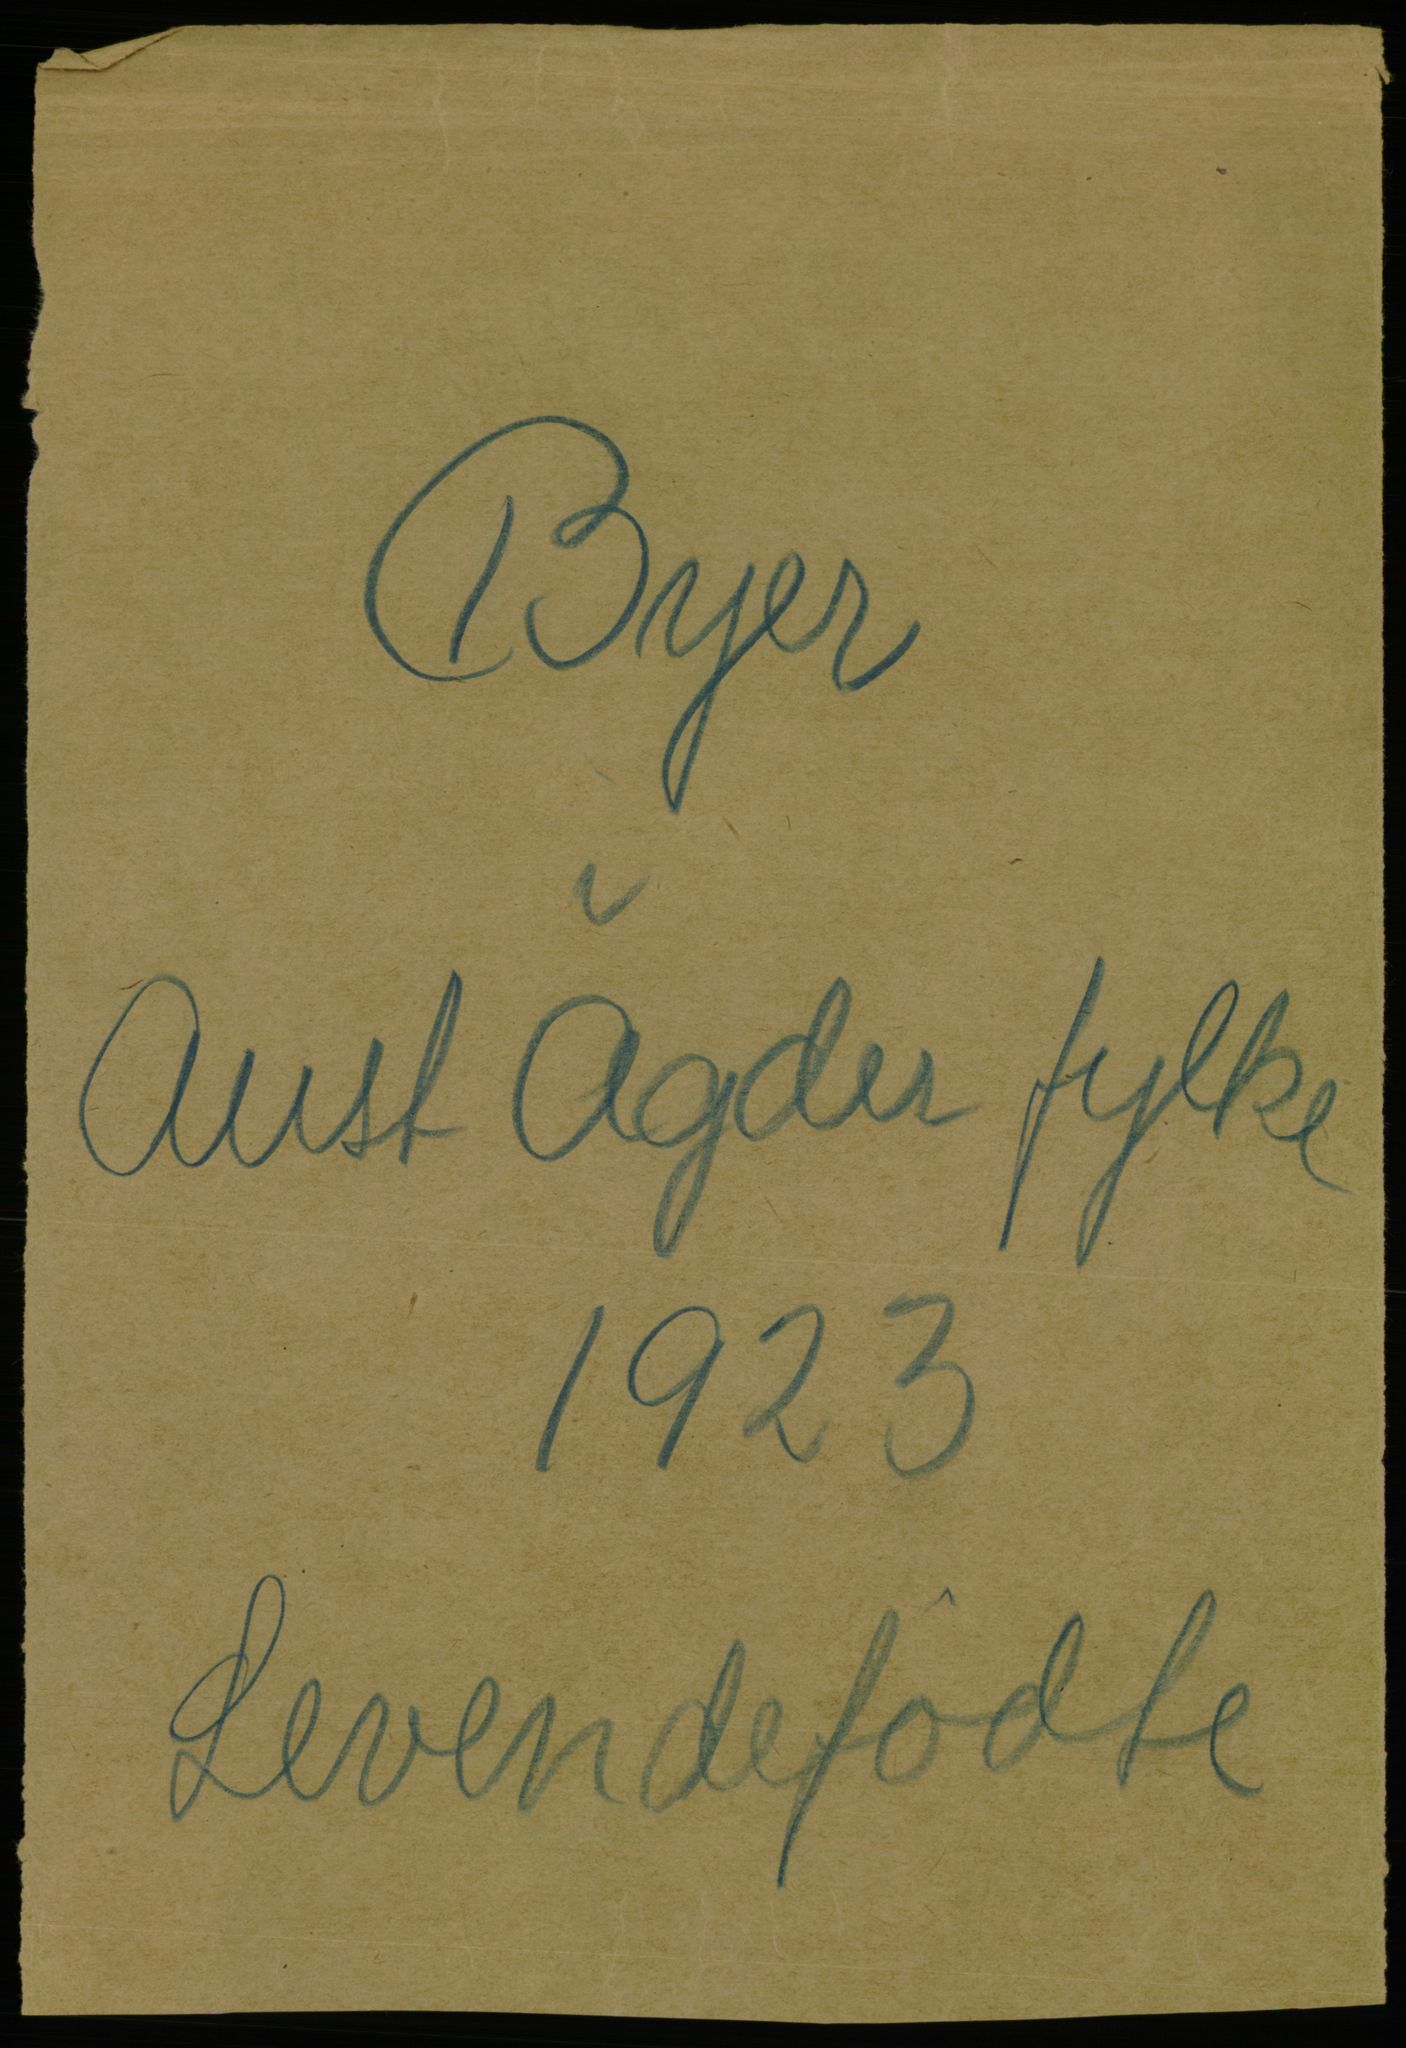 Byer
i
Aust Agder fylke
1923
Levendefødte